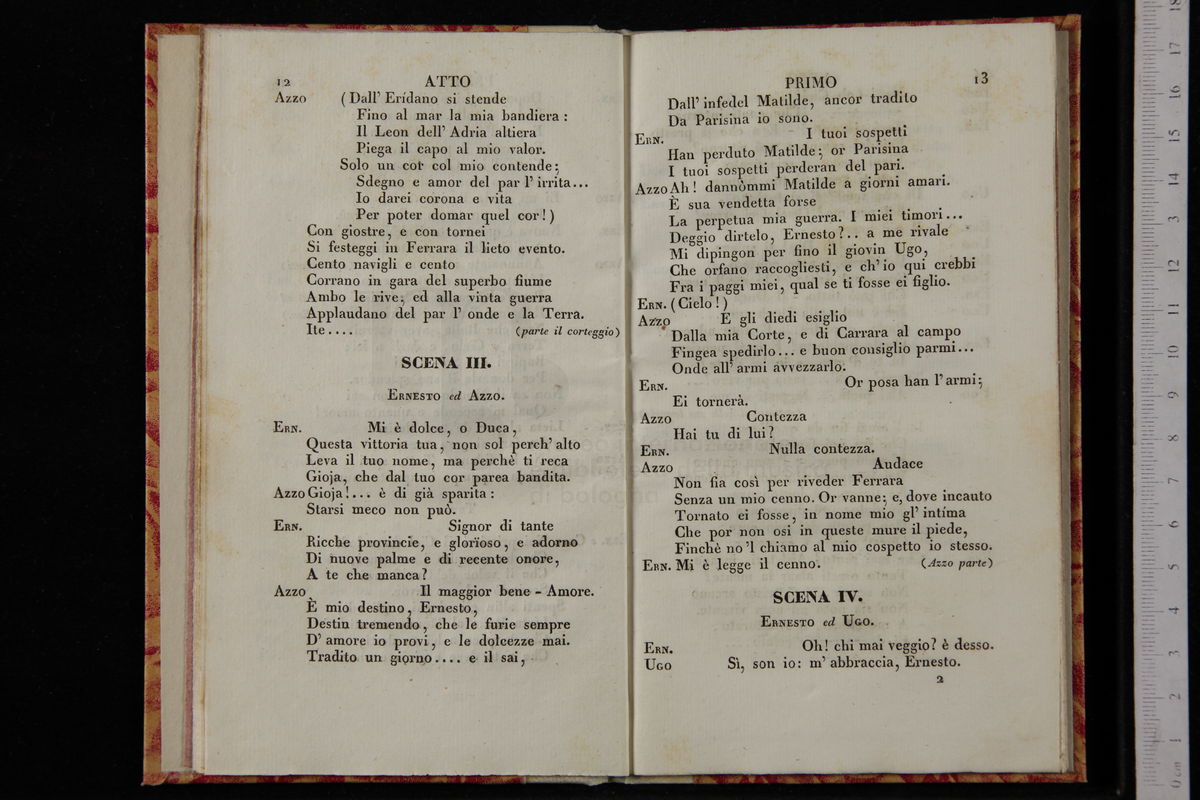 12 ATTO
Azzo (Dall' Erídano si stende
Fino al mar la mia bandiera:
Il Leon dell' Adria altiera
Piega il capo al mio valor.
Solo un cor col mio contende;
Sdegno e amor del par l' irrita...
Io darei corona e vita
Per poter domar quel cor!)
Con giostre, e con tornei
Si festeggi in Ferrara il lieto evento.
Cento navigli e cento
Corrano in gara del superbo fiume
Ambo le rive; ed alla vinta guerra
Applaudano del par l' onde e la Terra.
Ite.... (parte il corteggio)
SCENA III.
Ernesto ed Azzo.
Ern. Mi è dolce, o Duca,
Questa vittoria tua, non sol perch' alto
Leva il tuo nome, ma perchè ti reca
Gioja, che dal tuo cor parea bandita.
Azzo Gioja!... è di già sparita:
Starsi meco non può.
Ern. Signor di tante
Ricche provincie, e glorïoso, e adorno
Di nuove palme e di recente onore,
A te che manca?
Azzo Il maggior bene - Amore.
È mio destino, Ernesto,
Destin tremendo, che le furie sempre
D' amore io provi, e le dolcezze mai.
Tradito un giorno.... e il sai,
PRIMO 13
Dall' infedel Matilde, ancor tradito
Da Parisina io sono.
Ern. I tuoi sospetti
Han perduto Matilde; or Parisina
I tuoi sospetti perderan del pari.
Azzo Ah! dannòmmi Matilde a giorni amari.
È sua vendetta forse
La perpetua mia guerra. I miei timori...
Deggio dirtelo, Ernesto?.. a me rivale
Mi dipingon per fino il giovin Ugo,
Che orfano raccogliesti, e ch' io qui crebbi
Fra i paggi miei, qual se ti fosse ei figlio.
Ern. (Cielo!)
Azzo E gli diedi esiglio
Dalla mia Corte, e di Carrara al campo
Fingea spedirlo... e buon consiglio parmi...
Onde all' armi avvezzarlo.
Ern. Or posa han l' armi;
Ei tornerà.
Azzo Contezza
Hai tu di lui?
Ern. Nulla contezza.
Azzo Audace
Non fia così per riveder Ferrara
Senza un mio cenno. Or vanne; e, dove incauto
Tornato ei fosse, in nome mio gl' intíma
Che por non osi in queste mure il piede,
Finchè no 'l chiamo al mio cospetto io stesso.
Ern. Mi è legge il cenno. (Azzo parte)
SCENA IV.
Ernesto ed Ugo.
Ern. Oh! chi mai veggio? è desso.
Ugo Sì, son io: m' abbraccia, Ernesto.
2